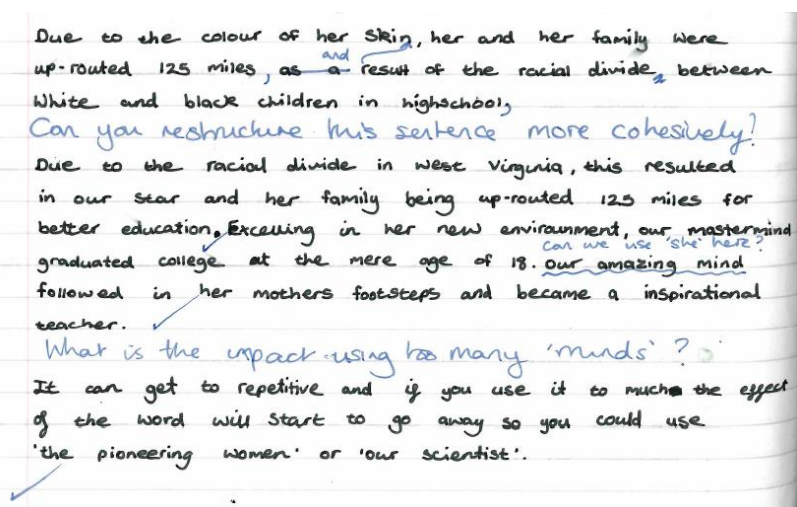 Due to the colour of her skin, her and her family were
and
up-routed 125 miles, as a result of the racial divide, between
White and black children in highschool,
Can you restructure this sentence more cohesively?
Due to the racial divide in west Virginia, this resulted
in our star and her family being up-routed 125 miles for
better education. Excelling in her new envirounment, our mastermind
can we use 'she' here?
graduated college at the mere age of 18. our amazing mind
followed in her mothers footsteps and became a inspirational
teacher.
What is the impact using too many 'minds'?
It can get to repetitive and if you use it to much the effect
of the word will start to go away so you could use
'the pioneering women' or 'our scientist'.